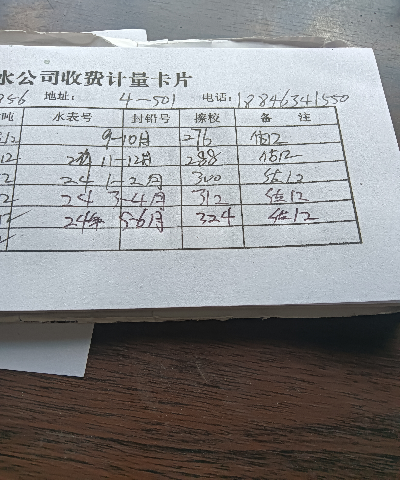 水公司收费计量卡片
856 地址: 4-501 电话: 18846341550
吨 水表号 封铅号 擦校 备 注
12 9-10月 276 估12
12 23 11-12月 288 估12
12 24 1-2月 300 估12
2 24 3-4月 312 估12
12 24年 5-6月 324 估12